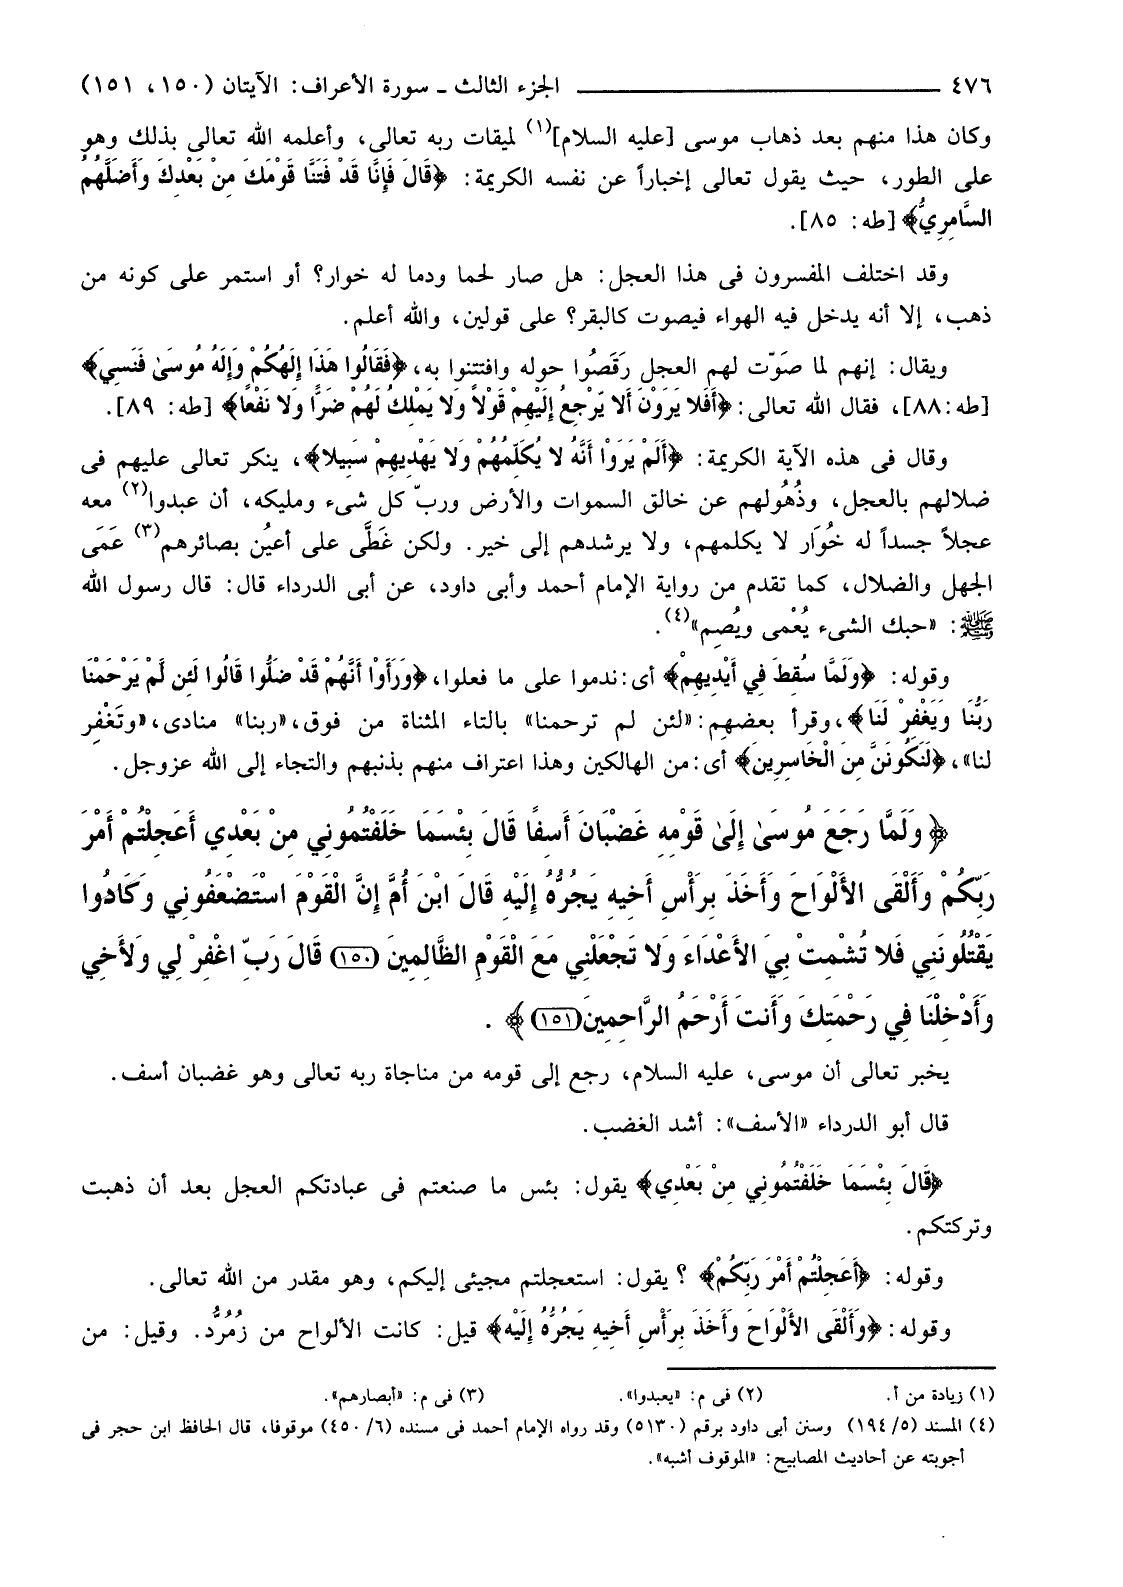 ٤٧٦ ــــــــــــــــــــ الجزء الثالث ـ سورة الأعراف: الآيتان (١٥٠، ١٥١)
وكان هذا منهم بعد ذهاب موسى [عليه السلام](١) لميقات ربه تعالى، وأعلمه الله تعالى بذلك وهو
على الطور، حيث يقول تعالى إخباراً عن نفسه الكريمة: ﴿قَالَ فَإِنَّا قَدْ فَتَنَّا قَوْمَكَ مِنْ بَعْدِكَ وَأَضَلَّهُمُ
السَّامِرِيُّ﴾ [طه: ٨٥].
وقد اختلف المفسرون فى هذا العجل: هل صار لحما ودما له خوار؟ أو استمر على كونه من
ذهب، إلا أنه يدخل فيه الهواء فيصوت كالبقر؟ على قولين، والله أعلم.
ويقال: إنهم لما صَوّت لهم العجل رَقَصُوا حوله وافتتنوا به، ﴿فَقَالُوا هَذَا إِلَهُكُمْ وَإِلَهُ مُوسَىٰ فَنَسِيَ﴾
[طه:٨٨]، فقال الله تعالى: ﴿أَفَلا يَرَوْنَ أَلا يَرْجِعُ إِلَيْهِمْ قَوْلاً وَلا يَمْلِكُ لَهُمْ ضَرًّا وَلا نَفْعًا﴾ [طه: ٨٩].
وقال فى هذه الآية الكريمة: ﴿أَلَمْ يَرَوْا أَنَّهُ لا يُكَلِّمُهُمْ وَلا يَهْدِيهِمْ سَبِيلا﴾، ينكر تعالى عليهم فى
ضلالهم بالعجل، وذُهُولهم عن خالق السموات والأرض وربّ كل شىء ومليكه، أن عبدوا(٢) معه
عجلاً جسداً له خُوَار لا يكلمهم، ولا يرشدهم إلى خير. ولكن غَطَّى على أعيُن بصائرهم(٣) عَمَى
الجهل والضلال، كما تقدم من رواية الإمام أحمد وأبى داود، عن أبى الدرداء قال: قال رسول الله
ﷺ: «حبك الشىء يُعْمى ويُصِم»(٤).
وقوله: ﴿وَلَمَّا سُقِطَ فِي أَيْدِيهِمْ﴾ أى:ندموا على ما فعلوا، ﴿وَرَأَوْا أَنَّهُمْ قَدْ ضَلُّوا قَالُوا لَئِن لَّمْ يَرْحَمْنَا
رَبُّنَا وَيَغْفِرْ لَنَا﴾،وقرأ بعضهم:«لئن لم ترحمنا» بالتاء المثناة من فوق،«ربنا» منادى،«وتَغْفِر
لنا»، ﴿لَنَكُونَنَّ مِنَ الْخَاسِرِينَ﴾ أى:من الهالكين وهذا اعتراف منهم بذنبهم والتجاء إلى الله عزوجل.
﴿ وَلَمَّا رَجَعَ مُوسَىٰ إِلَىٰ قَوْمِهِ غَضْبَانَ أَسِفًا قَالَ بِئْسَمَا خَلَفْتُمُونِي مِنْ بَعْدِي أَعَجِلْتُمْ أَمْرَ
رَبِّكُمْ وَأَلْقَى الأَلْوَاحَ وَأَخَذَ بِرَأْسِ أَخِيهِ يَجُرُّهُ إِلَيْهِ قَالَ ابْنَ أُمَّ إِنَّ الْقَوْمَ اسْتَضْعَفُونِي وَكَادُوا
يَقْتُلُونَنِي فَلا تُشْمِتْ بِيَ الأَعْدَاءَ وَلا تَجْعَلْنِي مَعَ الْقَوْمِ الظَّالِمِينَ (١٥٠) قَالَ رَبِّ اغْفِرْ لِي وَلأَخِي
وَأَدْخِلْنَا فِي رَحْمَتِكَ وَأَنتَ أَرْحَمُ الرَّاحِمِينَ (١٥١) ﴾ .
يخبر تعالى أن موسى، عليه السلام، رجع إلى قومه من مناجاة ربه تعالى وهو غضبان أسف.
قال أبو الدرداء «الأسف»: أشد الغضب.
﴿قَالَ بِئْسَمَا خَلَفْتُمُونِي مِنْ بَعْدِي﴾ يقول: بئس ما صنعتم فى عبادتكم العجل بعد أن ذهبت
وتركتكم.
وقوله: ﴿أَعَجِلْتُمْ أَمْرَ رَبِّكُمْ﴾ ؟ يقول: استعجلتم مجيئى إليكم، وهو مقدر من الله تعالى.
وقوله: ﴿وَأَلْقَى الأَلْوَاحَ وَأَخَذَ بِرَأْسِ أَخِيهِ يَجُرُّهُ إِلَيْهِ﴾ قيل: كانت الألواح من زُمُرُّد. وقيل: من
(١) زيادة من أ. (٢) فى م: «يعبدوا». (٣) فى م: «أبصارهم».
(٤) المسند (٥/ ١٩٤) وسنن أبى داود برقم (٥١٣٠) وقد رواه الإمام أحمد فى مسنده (٦/ ٤٥٠) موقوفا، قال الحافظ ابن حجر فى
أجوبته عن أحاديث المصابيح: «الموقوف أشبه».